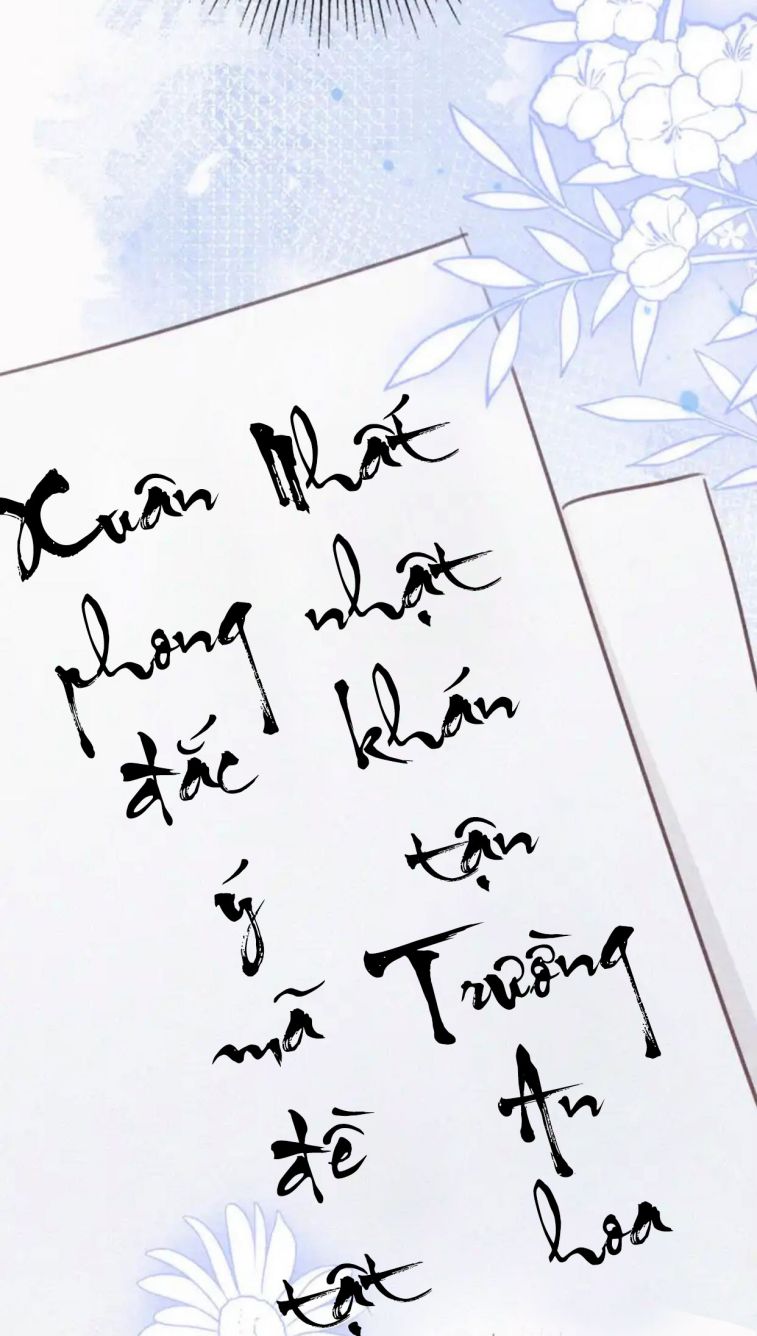 Xuân phong đắc ý mã đề tật
Nhất nhật khán tận Trường An hoa